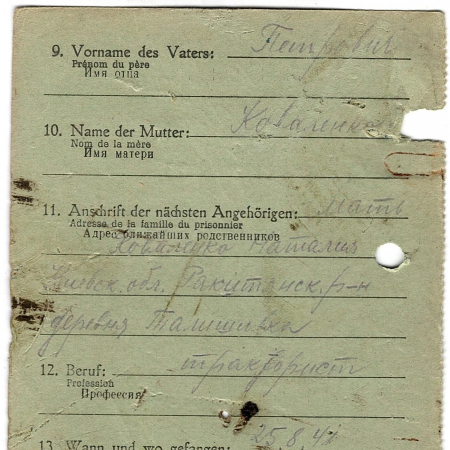 9. Vorname des Vaters: Петрович
Prénom du père
Имя отца
10. Name der Mutter: Коваленко
Nom de la mère
Имя матери
11. Anschrift der nächsten Angehörigen: мать
Adresse de la famille du prisonnier
Адрес ближайших родственников
Наталия
Киевск. обл. Ракитянск. р-н
деревня
12. Beruf: тракторист
Profession
Професcия
13. Wann und wo gefangen: 25.8.41